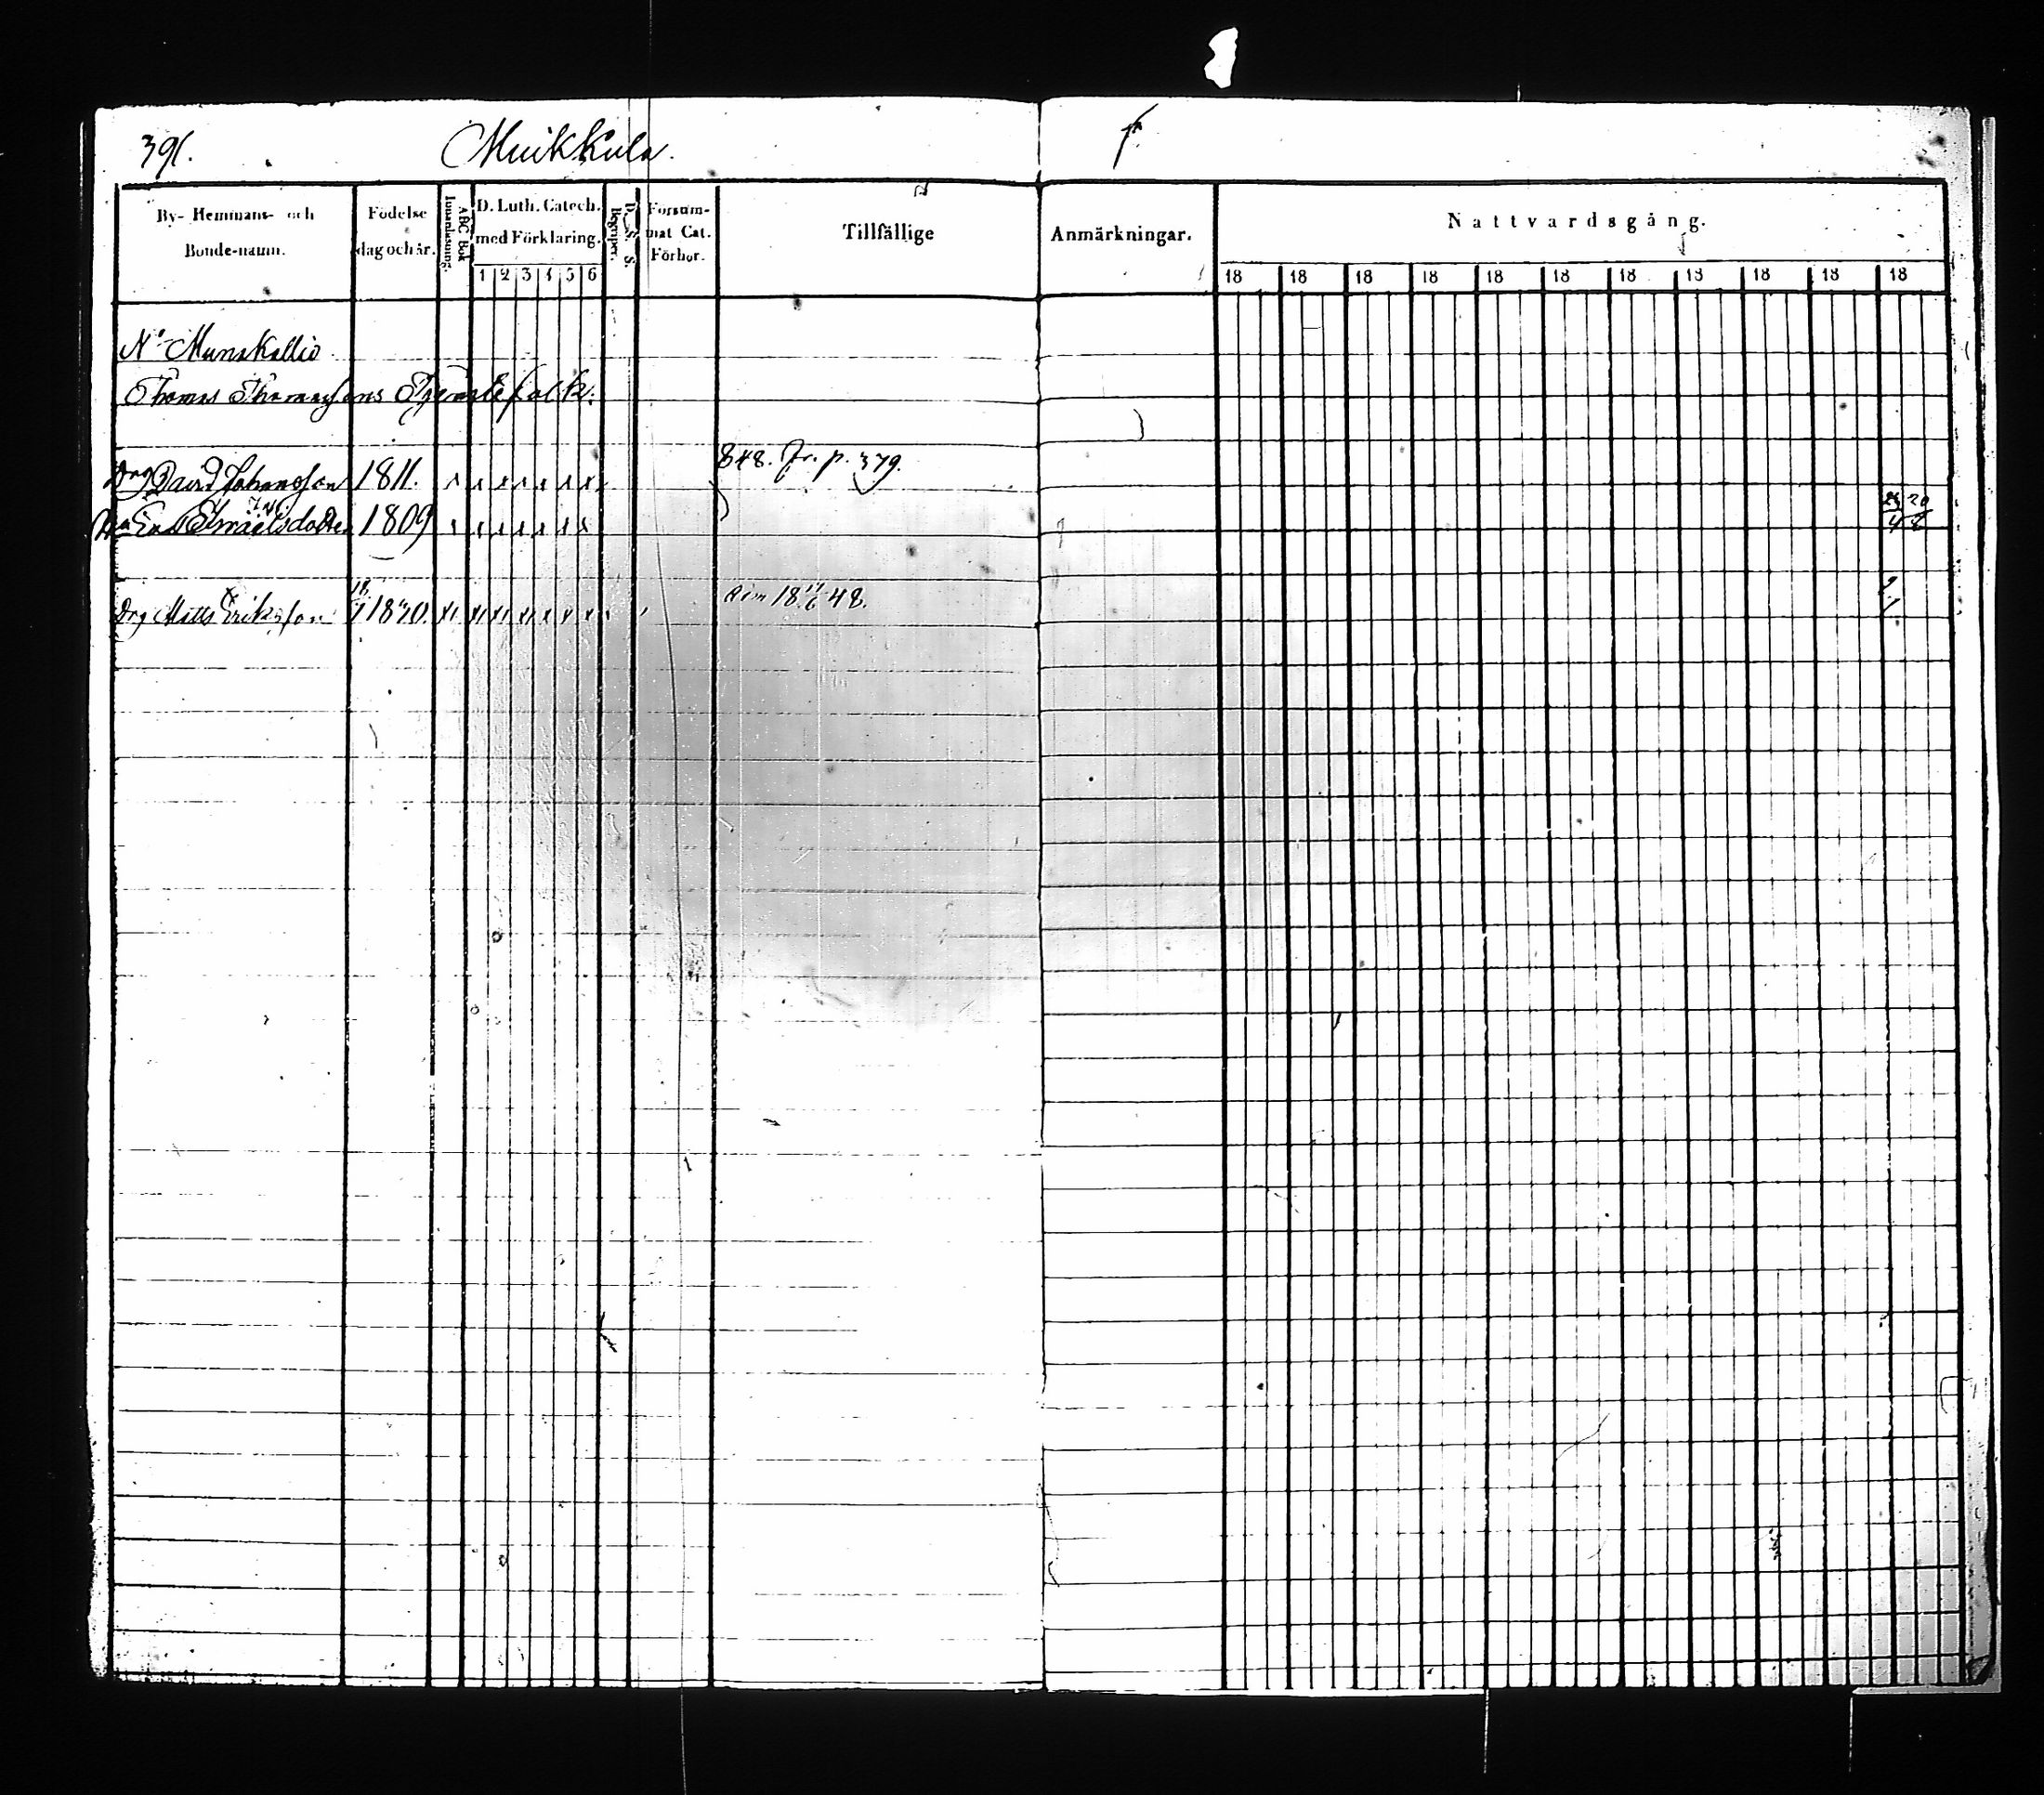 391. Muikkula.
By- Hemmans- och Bonde-namn.
Födelse dag och år.
ABC Bok Innanläsning.
D. Luth. Catech. med Förklaring.
1 2 3 4 5 6
D. S. S. Begrepet.
Försummat Cat. Förhör.
Tillfällige
Anmärkningar.
Nattvardsgång.
18 18 18 18 18 18 18 18 18 18 18
No Munakallio
Thomas Thomassons Tjenstefolk.
Drg David Johansson 1811. 848. fr. p. 379.
Elisraelsdotter 1809
Drg Matts Eriksson 1830. 18 48.